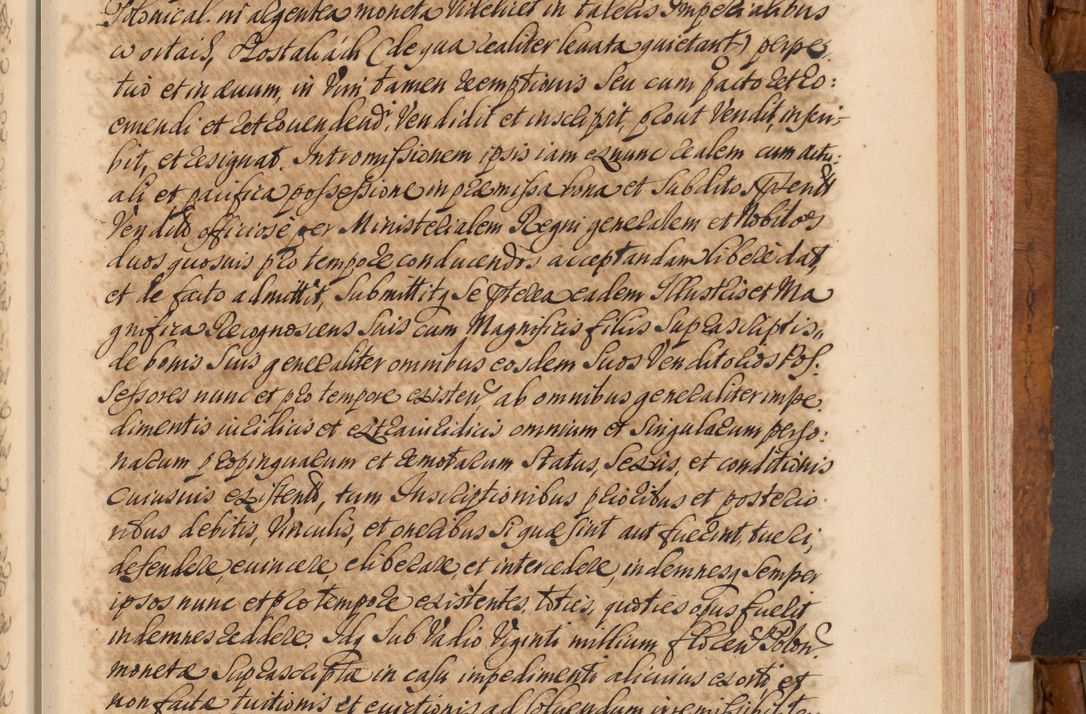 Polonical. in argentea moneta videlicet in taleris Imperialibus
(de qua realiter levata quietant) perpe:
tuo et in ævum, in vim tamen reemptionis seu cum pacto Retro:
emendi et Retrovendendi, Vendidit et inscripsit, prout Vendit, inscri-
bit, et resignat. Intromissionem ipsis iam ex nunc realem cum actu:
ali et pacifica possessione in præmissa bona et subditos
Vendito officiose per Ministerialem Regni generalem et Nobiles
duos quosvis pro tempore conducendos acceptandam libere dat,
et de facto admittit, submittitq se præterea eadem Illustris et Ma
gnifica Recognoscens suis cum Magnificis filiis suprascriptis
de bonis suis generaliter omnibus eosdem suos Venditorios Pos.
sessores nunc et pro tempore existen. ab omnibus generaliter impe.
dimentis iuridicis et extraiuridicis omnium et singularum perso:
narum propinquarum et remotarum status, sexus, et conditionis
cuiusvis existend, tum Inscriptionibus prioribus et posterio
ribus debitis, Vinculis, et oneribus si quæ sint aut fuerint, tueri,
defendere, evincere, eliberare, et intercedere, indemnesq semper
ipsos nunc et pro tempore existentes, toties, quoties opus fuerit
indemnes reddere. Idq sub Vadio Viginti millium floren Polon.
moneta suprascripta in casu impedimenti alicuius exorti et
non factæ tuitionis et evictionis ad solvendum irremissibiliter